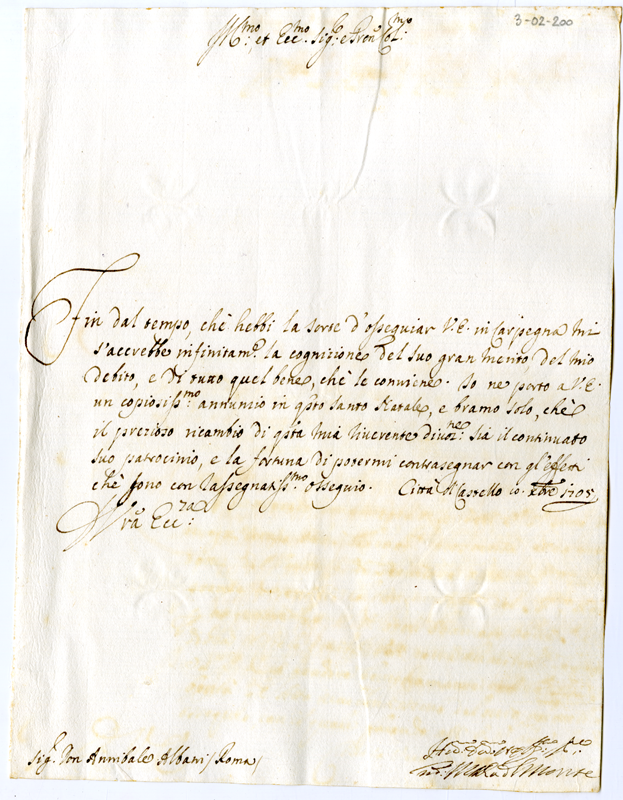 3-02-200
Ill.mo et Ecc.mo Sig.r e Pron Col.mo
Fin dal tempo, chè hebbi la sorte d'osseguiar V.E. in Carpegna mi
s'accrebbe infinitam.e la cognizione del suo gran merito, del mio
debito, e di tutto quel bene, chè le conviene. Io ne porto a V.E.
un copiosiss.mo annunzio in q̃sto Santo Natale, e bramo solo, chè
il prezioso ricambio di q̃sta mia riverente divoz.ne sia il continuato
suo patrocinio, e la fortuna di potermi contrasegnar con gl'effetti
chè sono con rassegnatiss.mo ossequio. Città di Castello 10. Xbre 1705
Vrã Ecc.za
Sig.r Don Annibale Albani / Roma /
Monte